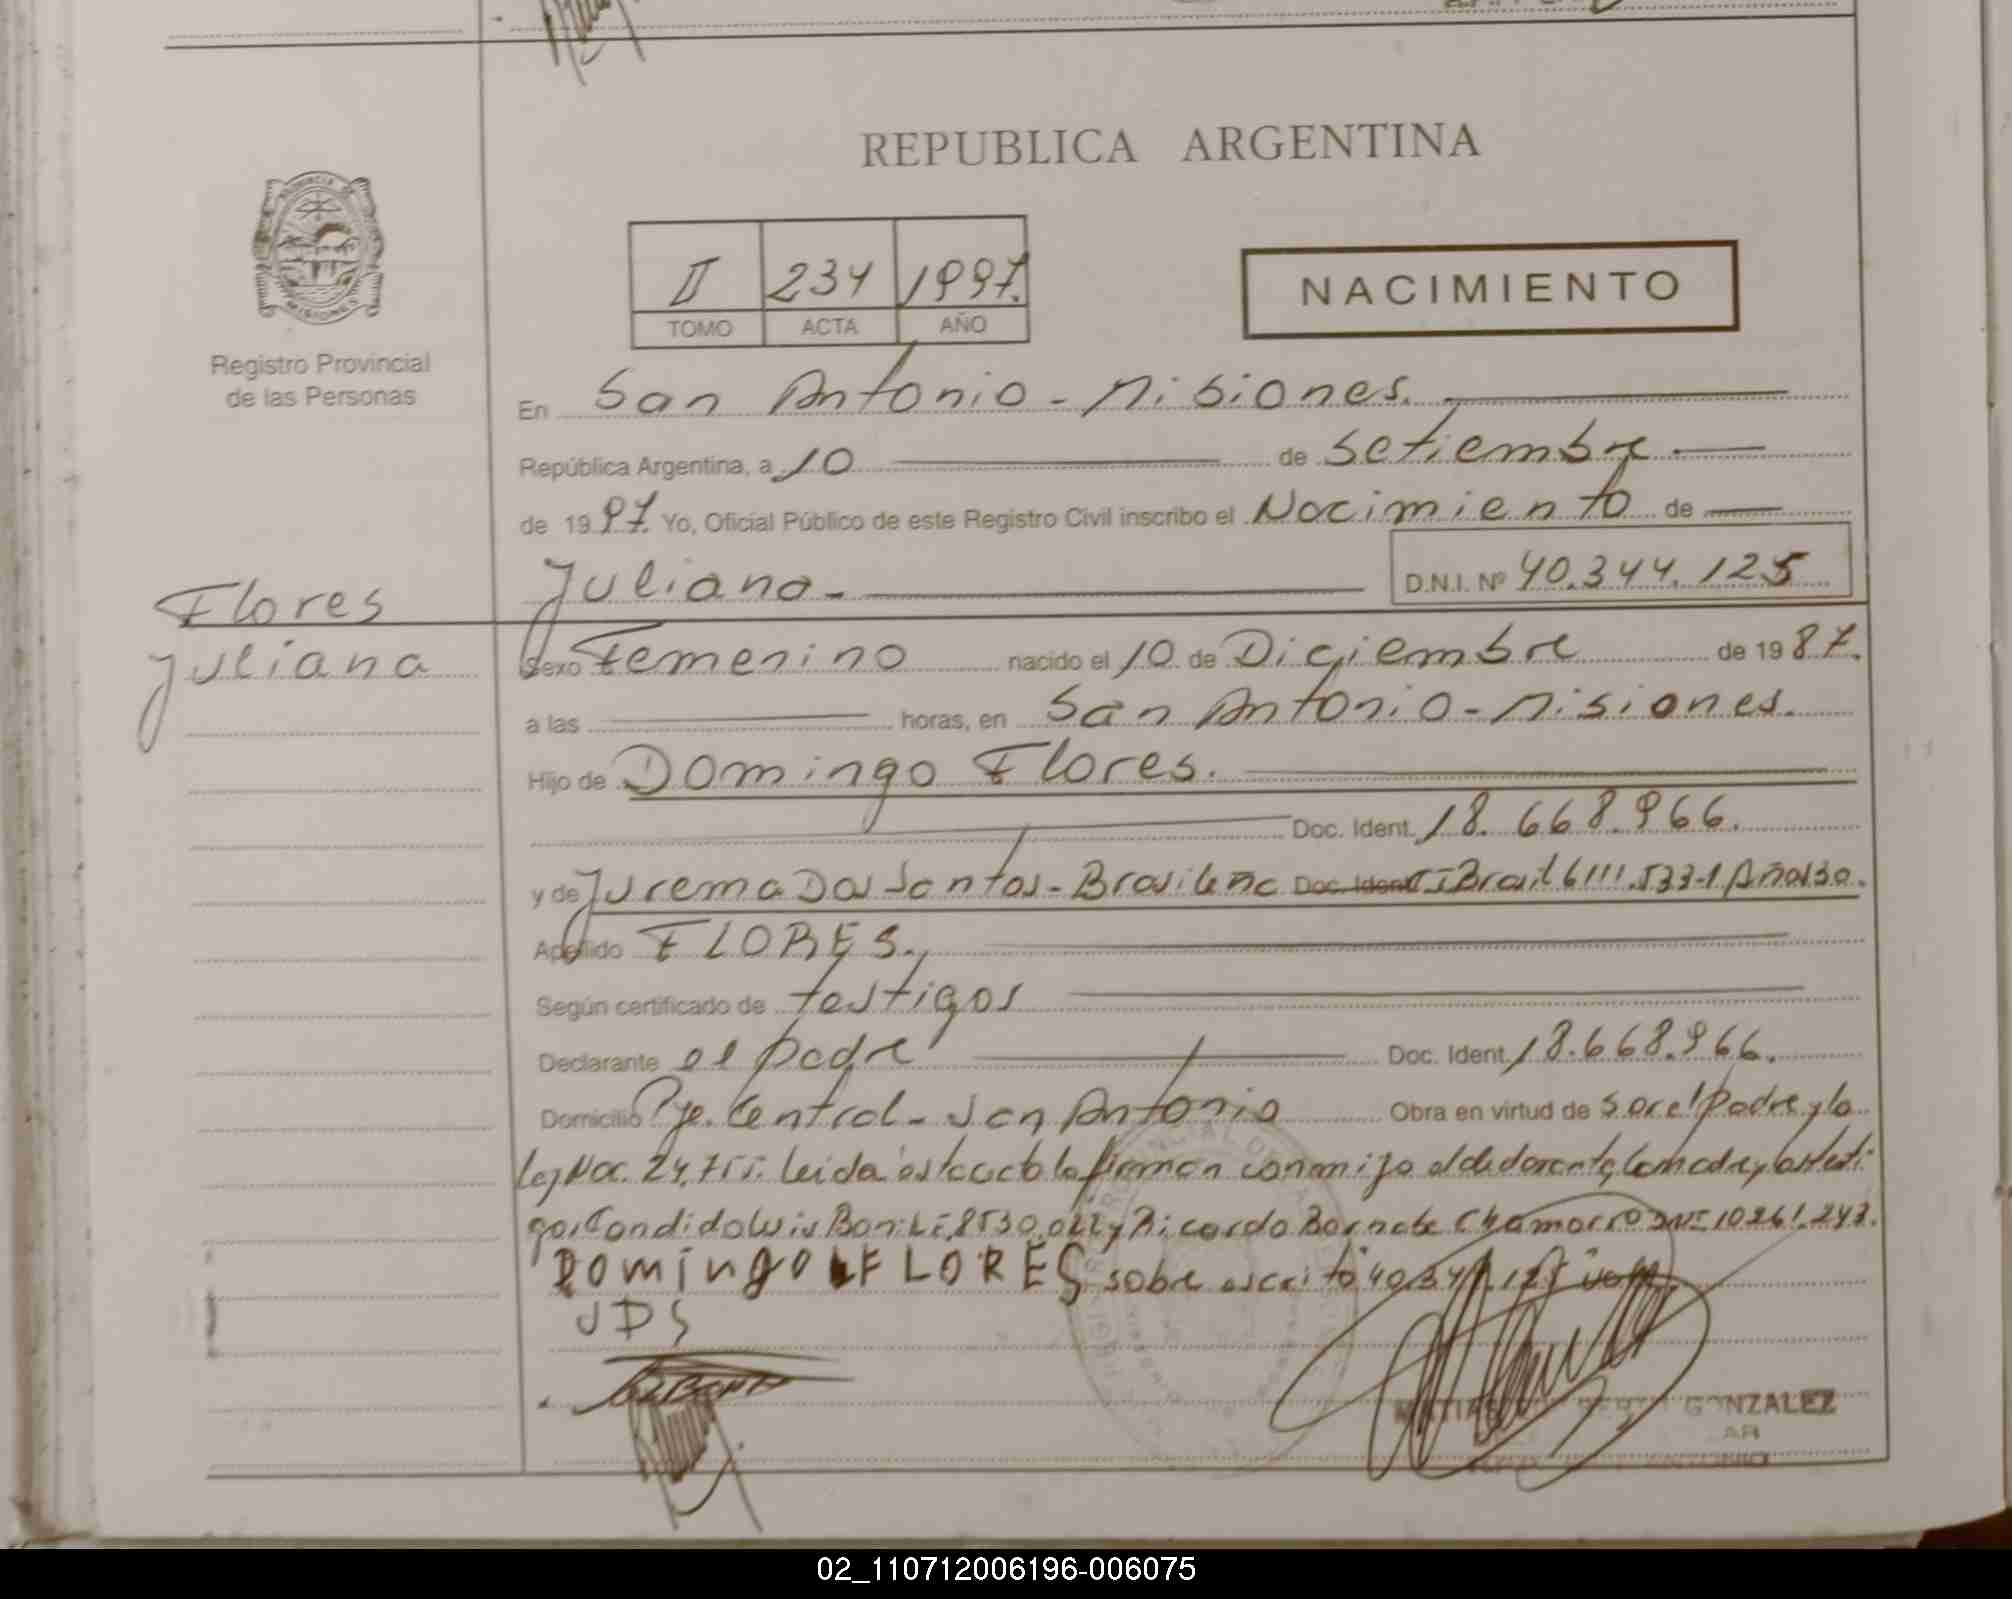 REPUBLICA ARGENTINA
PROVINCIA DE
MISIONES
II 234 1997.
TOMO ACTA AÑO
NACIMIENTO
Registro Provincial
de las Personas
En San Antonio - Misiones.
República Argentina, a 10 de Setiembre
de 1997. Yo, Oficial Público de este Registro Civil inscribo el Nacimiento de
Juliana. D.N.I. Nº 40.344.125
Flores
Juliana
Sexo Femenino nacido el 10 de Diciembre de 1987.
a las horas, en San Antonio - Misiones.
Hijo de Domingo Flores.
Doc. Ident. 18.668.966.
y de Jurema Dos Santos - Brasileña Doc. Ident CI Brasil 6111.533-1 Años 30.
Apellido FLORES.
Según certificado de testigos
Declarante el padre Doc. Ident. 18.668.966.
Domicilio Pje. Central - San Antonio Obra en virtud de ser el padre y la
Ley Nac. 24.755. Leida esta acta la firman conmigo el declarante, la madre y los testi-
gos Candido Luis Boni y Ricardo Bernabe Chamorro DNI 10261.243.
DOMINGO FLORES sobre escrito 40.344.125 vale
JDS
GONZALEZ
02_110712006196-006075